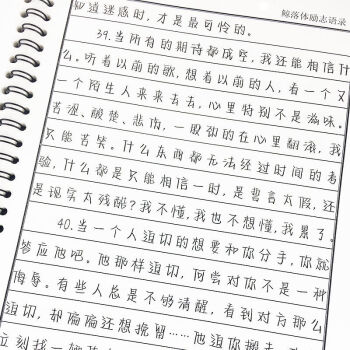 鲸落体励志语录
知道迷惑时,才是最可怜的。
39.当所有的期待都成空,我还能相信什
么。听着以前的歌,想着以前的人,看一个又
一个陌生人来来去去,心里特别不是滋味。
苦涩、酸楚、悲伤,一股脑的在心里翻滚,我
只能苦笑。什么东西都无法经过时间的考
验,什么都是只能相信一时,是誓言太假,还
是现实太残酷?我不懂,我也不想懂,我累了。
40.当一个人迫切的想要和你分手,你就
答应他吧。他那样迫切,何尝对你不是一种
侮辱。有些人总是不够清醒,看到对方那么
迫切,却偏偏还想挽留……他迫你搬去
立刻找一